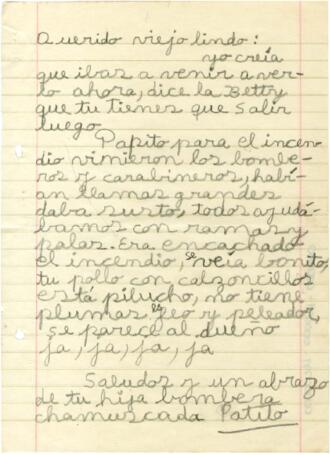 Querido viejo lindo:
yo creía
que ibas a venir a ver-
lo ahora, dice la Betty
que tu tienes que salir
luego
Papito para el incen-
dio vimieron los bombe-
ros y carabineros, habí-
an llamas grandes
daba susto, todos ayudá-
bamos con ramas y
palas. Era encachado
el incendio, se veía bonito,
tu pollo con calzoncillos
está pilucho, no tiene
plumas es feo y peleador,
se parece al dueño
ja, ja, ja, ja
Saludos y un abrazo
de tu hija bombera
chamuscada Patito